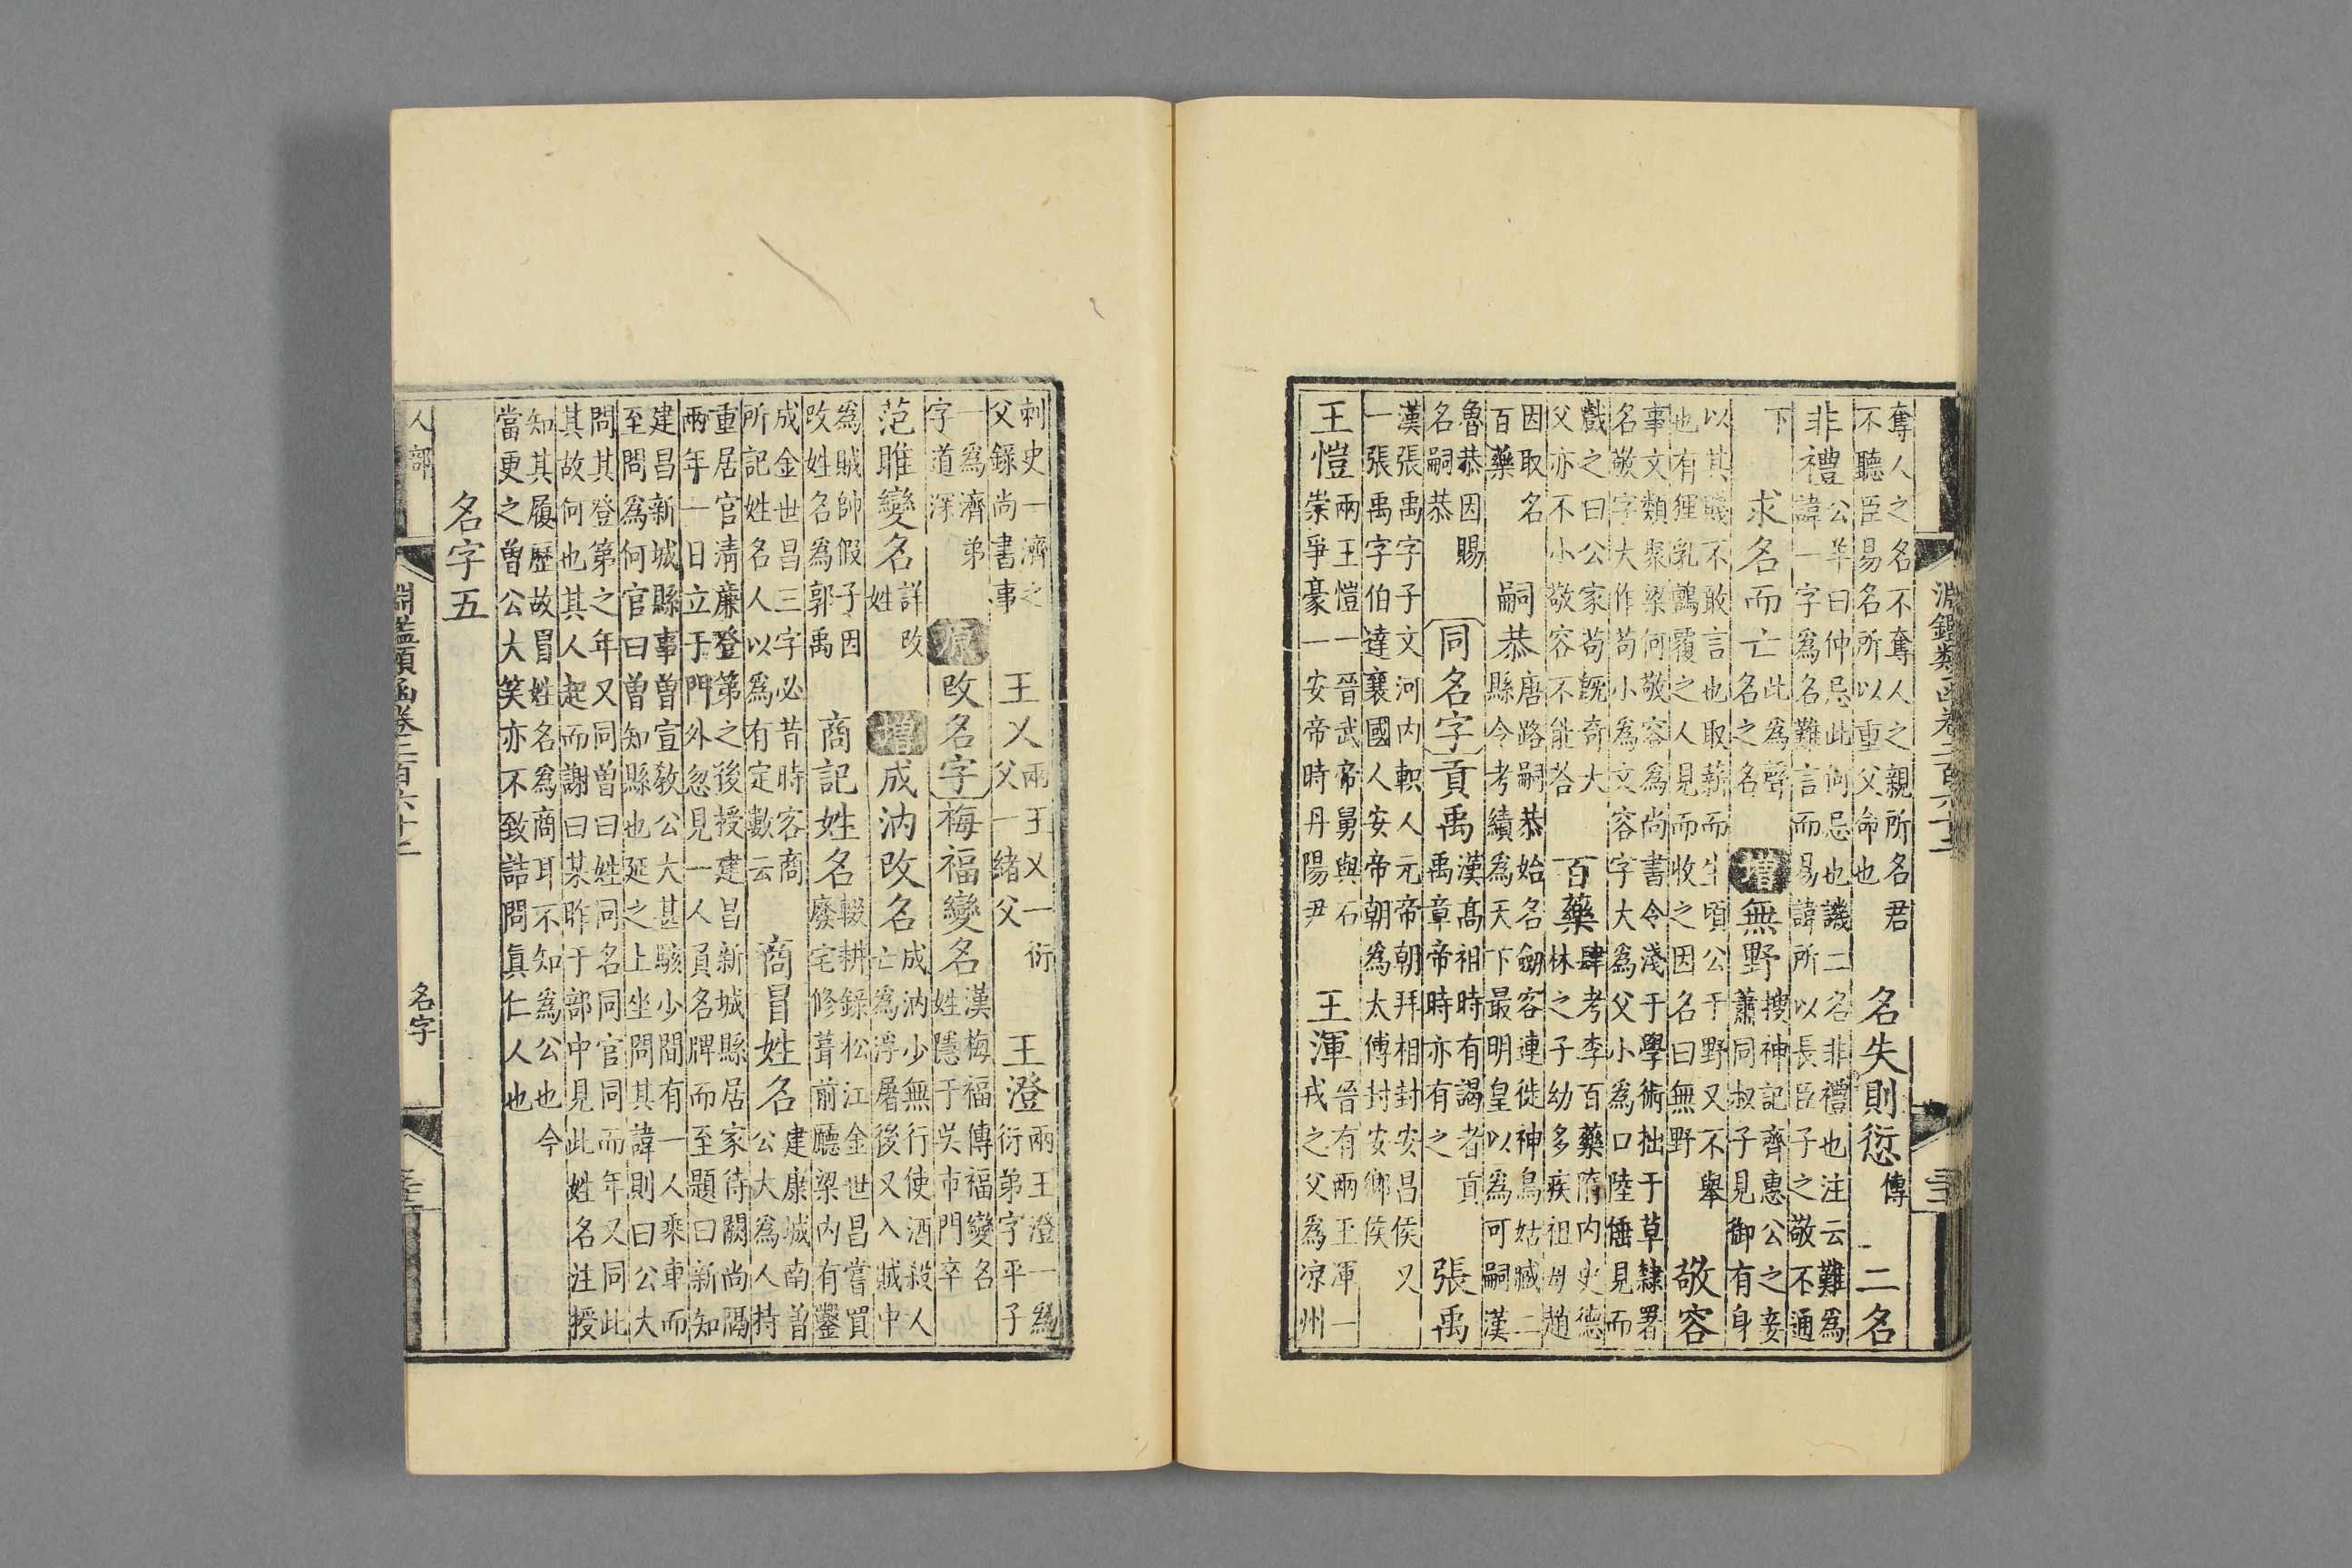 淵鑑類函卷二百六十二
奪人之名不奪人之親所名君
不聽臣易名所以重父命也
名失則愆
傳
二名
非禮
公羊曰仲忌此何忌也譏二名非禮也注云難為
諱一字為名難言而易諱所以長臣子之敬不通
下
求名而亡
此為聲
名之名
增
無野
搜神記齊惠公之妾
蕭同叔子見御有身
以其賤不敢言也取薪而生頃公于野又不舉
也有狸乳鸇覆之人見而收之因名曰無野
敬容
事文類聚梁何敬容為尚書令淺于學術拙于草隸署
名敬字大作苟小為文容字大為父小為口陸倕見而
戲之曰公家苟既奇大
父亦不小敬容不能答
百藥
肆考李百藥隋内史德
林之子幼多疾祖母趙
因取名
百藥
嗣恭
唐路嗣恭始名劒容連徙神烏姑臧二
縣令考績為天下最明皇以為可嗣漢
魯恭因賜
名嗣恭
同名字
貢禹
漢髙祖時有謁者貢
禹章帝時亦有之
張禹
漢張禹字子文河内軹人元帝朝拜相封安昌侯又
一張禹字伯達襄國人安帝朝為太傅封安鄉侯
王愷
兩王愷一晉武帝舅與石
崇爭豪一安帝時丹陽尹
王渾
晉有兩王渾一
戎之父為凉州
刺史一濟之
父錄尚書事
王乂
兩王乂一衍
父一緒父
王澄
兩王澄一為
衍弟字平子
一為濟弟
字道深
原
改名字
梅福變名
漢梅福傳福變名
姓隱于吳市門卒
范雎變名
詳改
姓
增
成汭改名
成汭少無行使酒殺人
亡為浮屠後又入賊中
為賊帥假子因
改姓名為郭禹
商記姓名
輟耕錄松江金世昌嘗買
廢宅修葺前廳梁内有鑿
成金世昌三字必昔時客商
所記姓名人以為有定數云
商冒姓名
建康城南曾
公大為人持
重居官清廉登第之後授建昌新城縣居家待闕尚隔
兩年一日立于門外忽見一人負名牌而至題曰新知
建昌新城縣事曾宣敎公大甚駭少間有一人乘車而
至問為何官曰曾知縣也延之上坐問其諱則曰公大
問其登第之年又同曾曰姓同名同官同而年又同此
其故何也其人起而謝曰某昨于部中見此姓名注授
知其履歷故冒姓名為商耳不知為公也今
當更之曾公大笑亦不致詰問真仁人也
名字五
人部
淵鑑類函卷二百六十二
名字